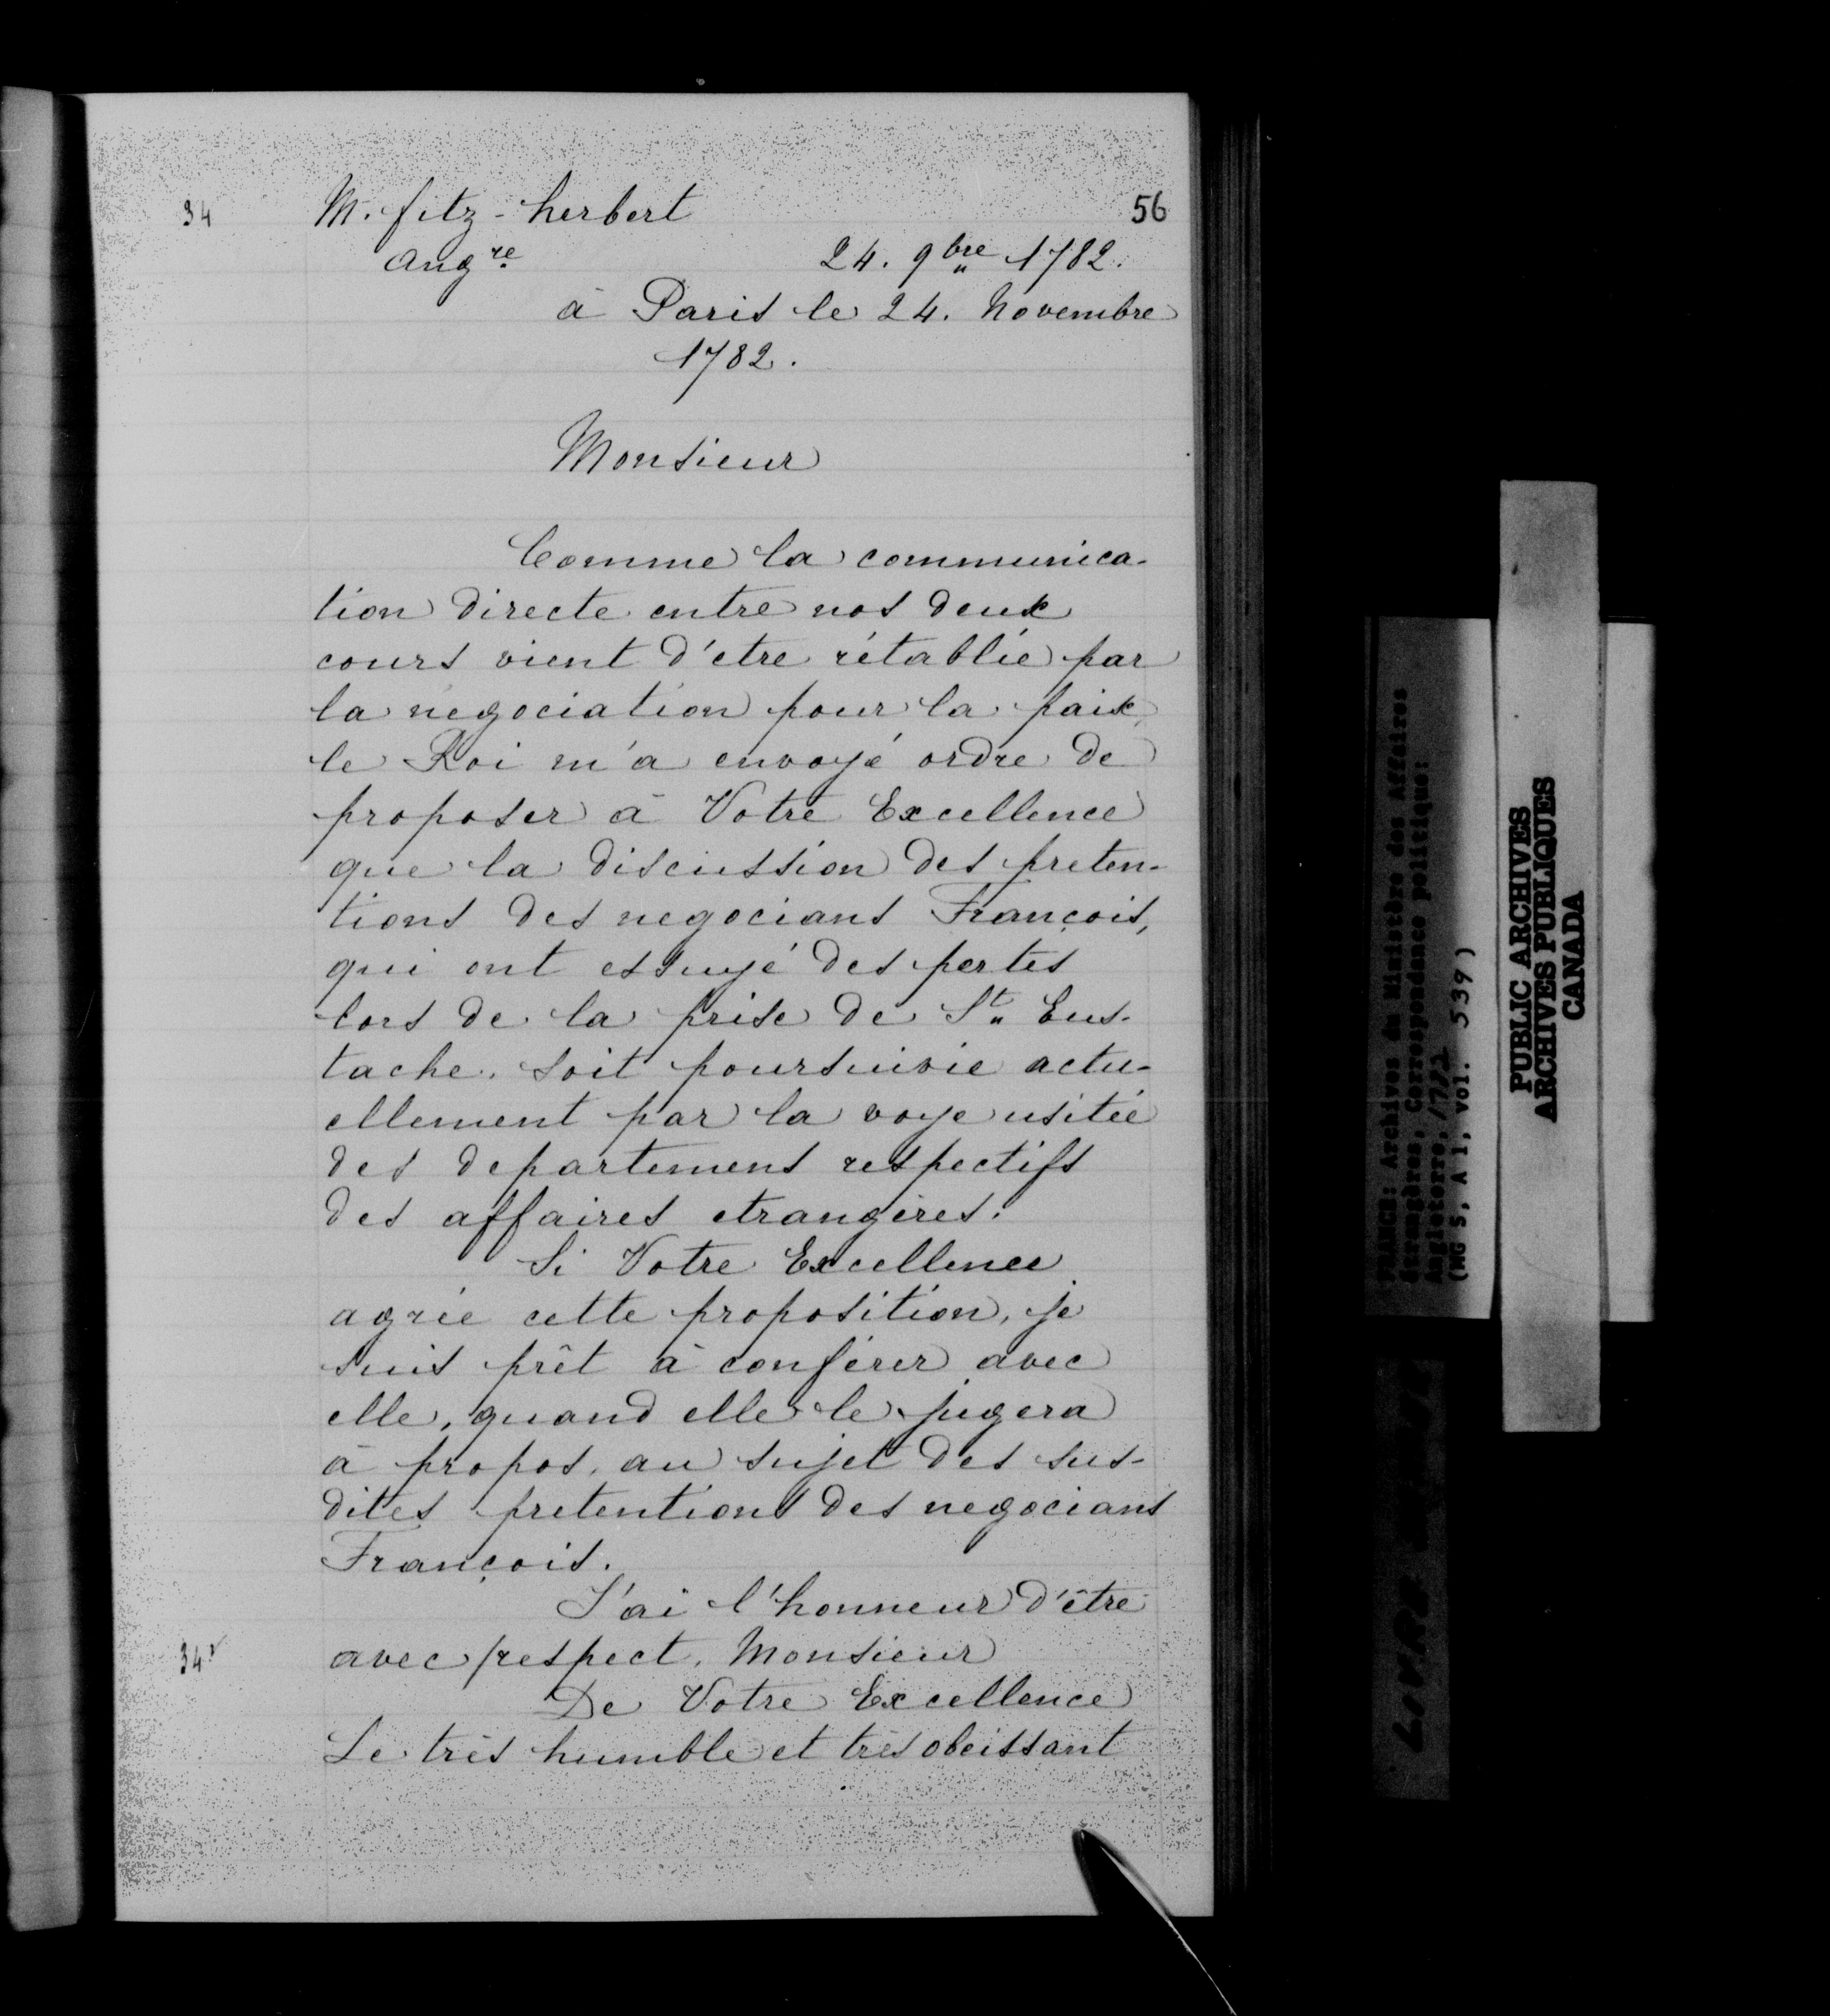 34
M. fitz-herbert
56
Angre
24. 9bre 1782.
à Paris le 24. Novembre
1782.
Monsieur
Comme la communica-
tion directe entre nos deux
cours vient d'etre rétablie par
la negociation pour la paix
le Roi m'a envoyé ordre de
proposer à Votre Excellence
que la discussion des preten-
tions des negocians François,
qui ont essuyé des pertes
lors de la prise de St. Eus-
tache, soit poursuivie actu-
ellement par la voye usitée
des departemens respectifs
des affaires etrangères.
Si Votre Excellence
agrée cette proposition, je
suis prêt à conférer avec
elle, quand elle le jugera
à propos, au sujet des sus-
dites pretentions des negocians
François.
J'ai l'honneur d'être
34v
avec respect, Monsieur
De Votre Excellence
Le très humble et très obeissant
FRANCE: Archives du Ministère des Affaires
étrangères, Correspondance politique:
Angleterre, 1782
(MG 5, A 1, vol. 539)
PUBLIC ARCHIVES
ARCHIVES PUBLIQUES
CANADA